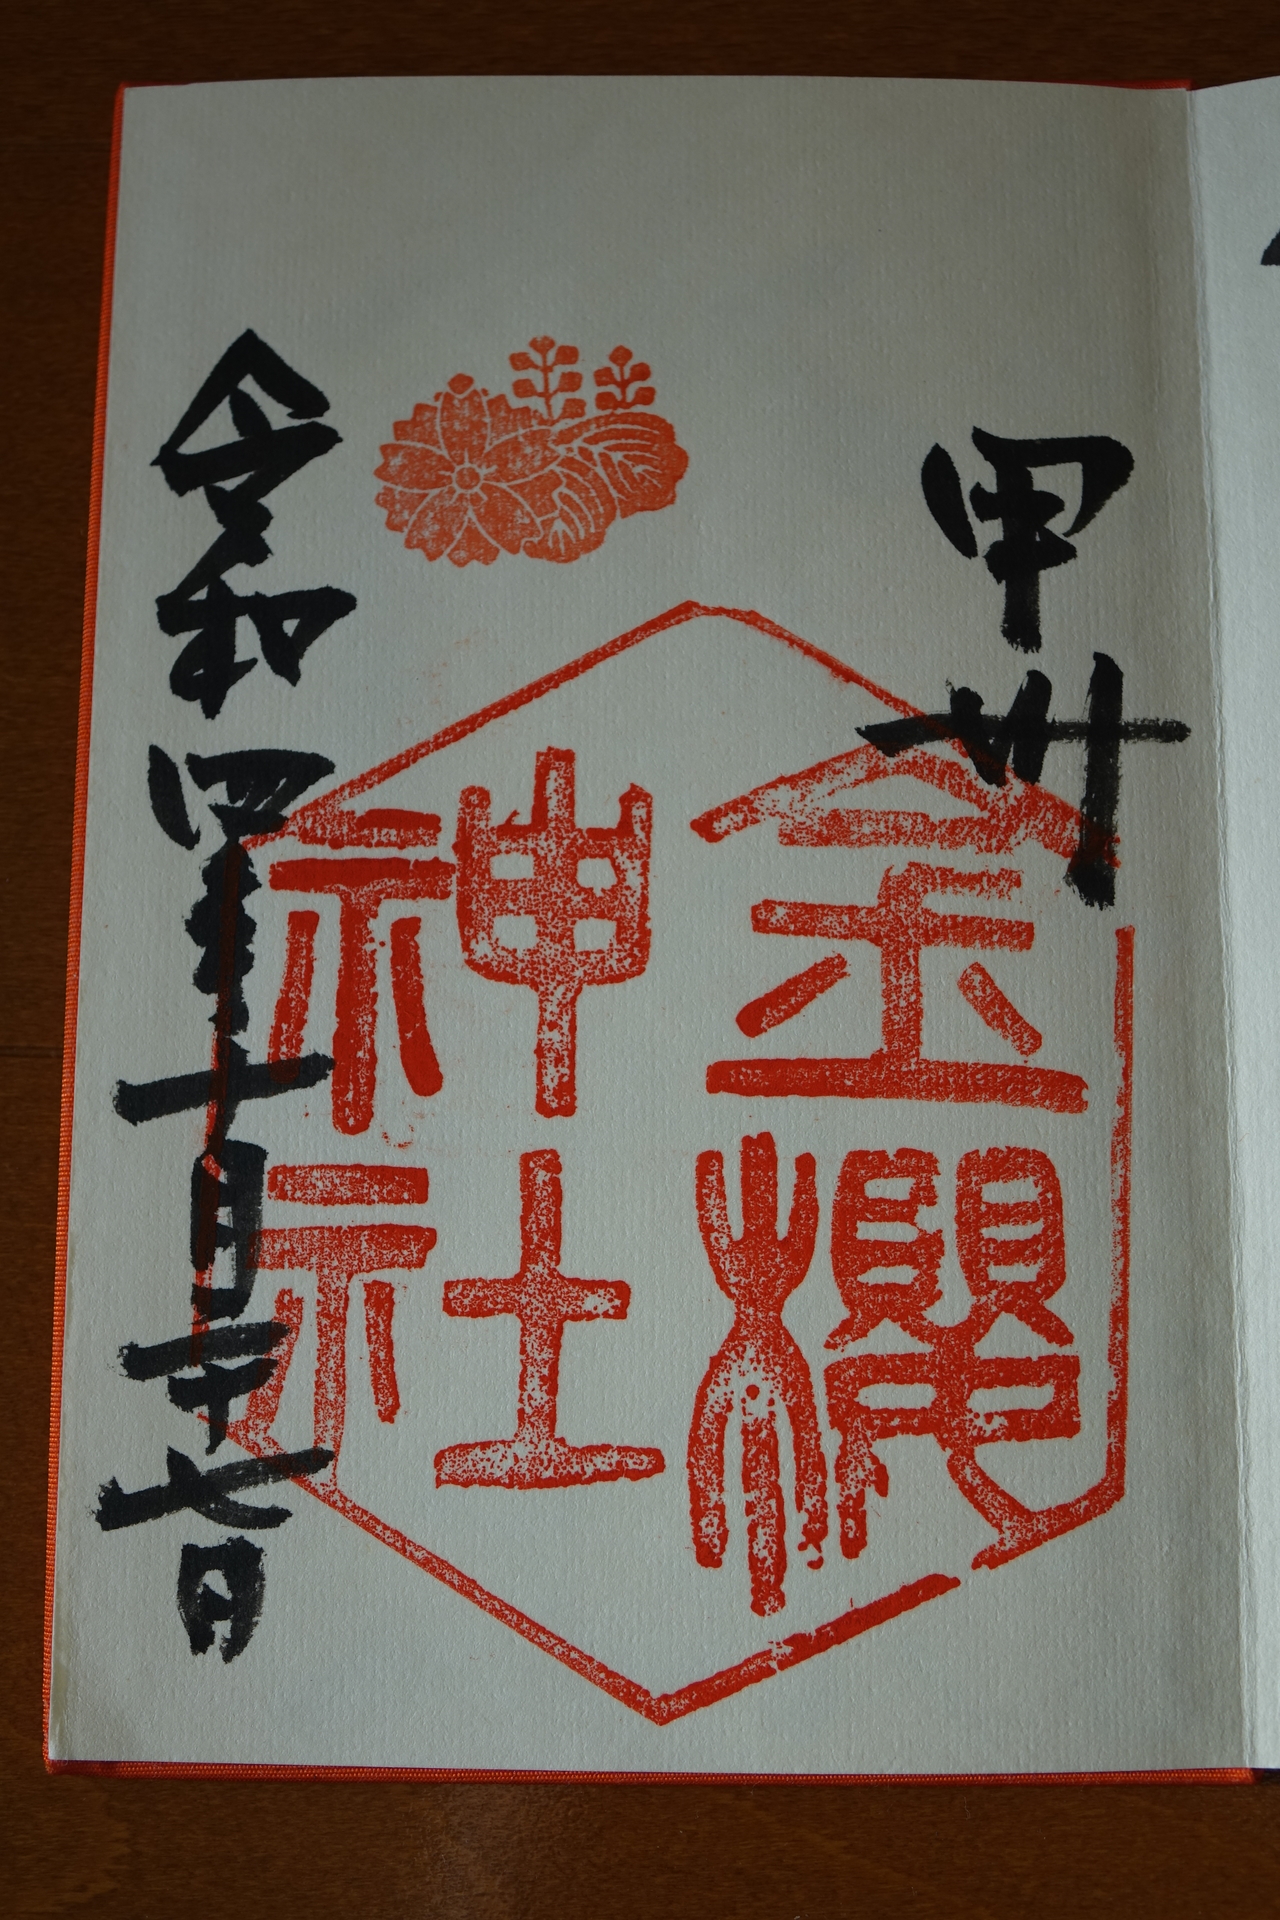 甲州
金櫻
神社
令和四年十月二十七日